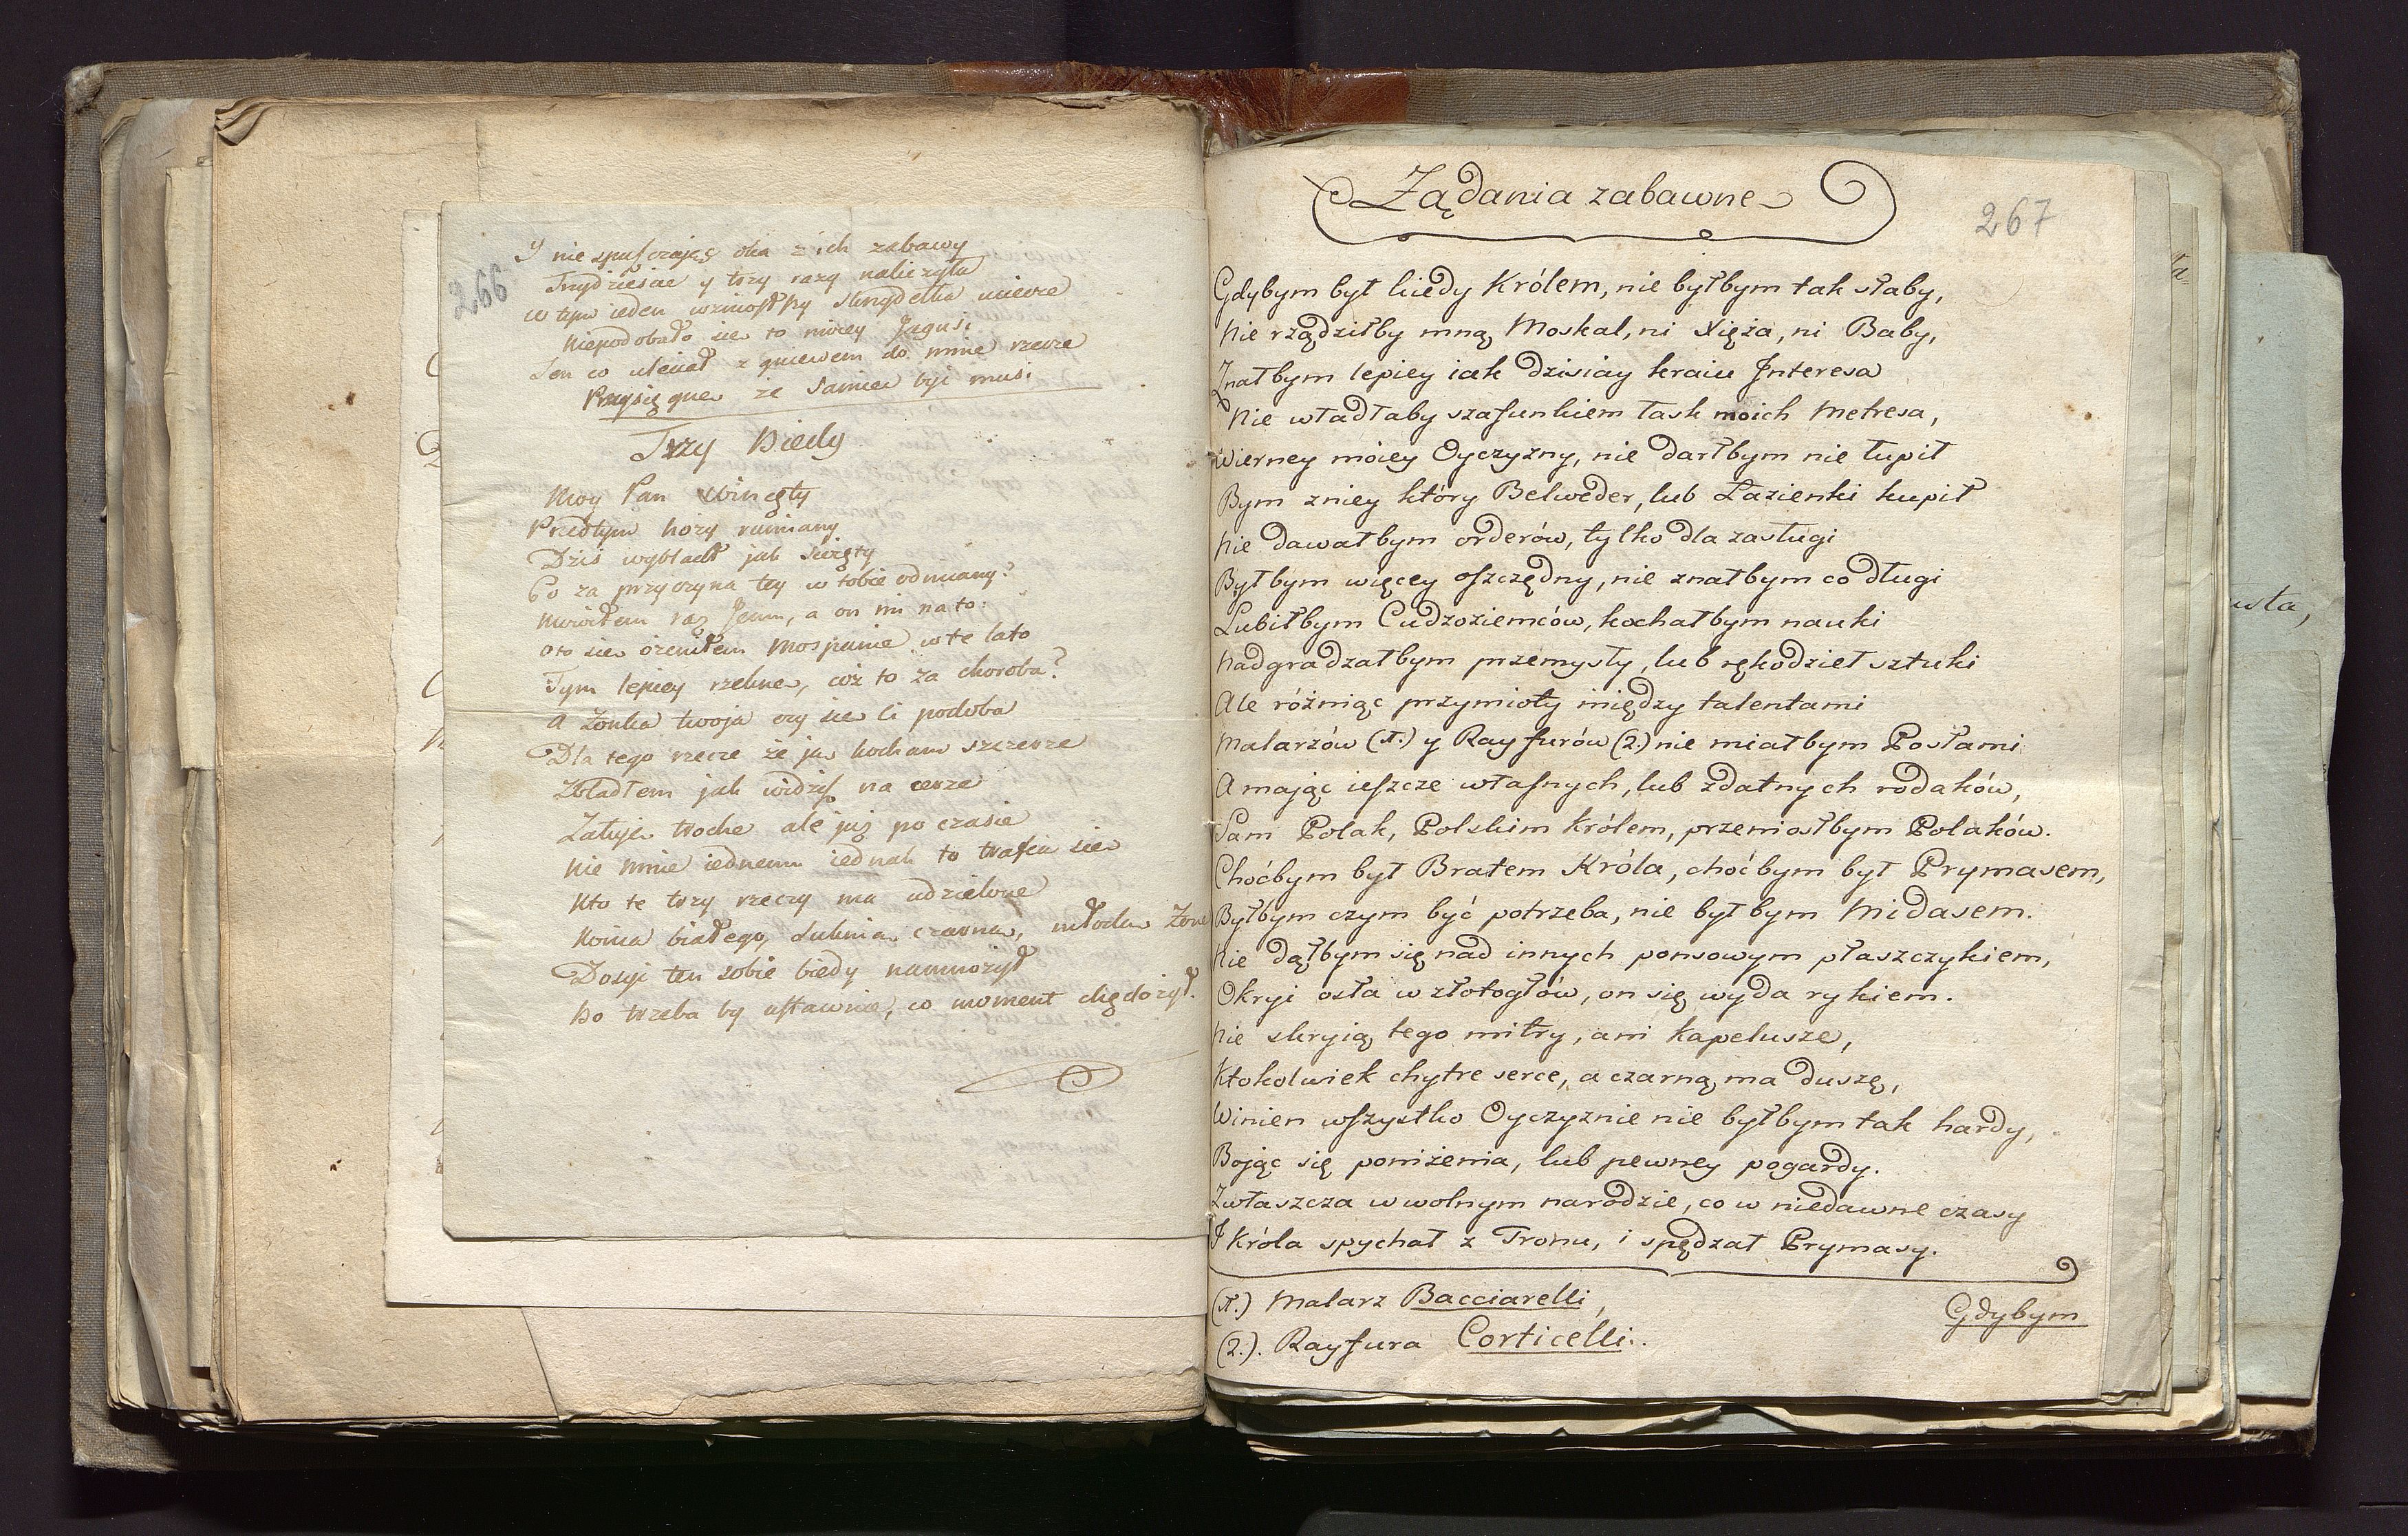 266
Y nie spuszczaięc oka z ich zabawy
Trzydzieście y trzy razy naliczyła
w tym ieden wzniosłszy skrzydełka
Niepodobało sie to mocy Jagusi
Ten co uleciał z gniewem do mnie rzecze
Przysięgne że Samiec być musi
Trzy Biedy
Moy Pan Wincęty
Przedtym hoży rumiany
Dziś wybladł jak święty
Co za przyczyna tey w tobie odmiany?
Mowiłem raz Jemu, a on mi na to:
Oto sie ożeniłem Mospanie w te lato
Tym lepiey rzekne, coż to za choroba?
A Żonka twoja czy sie Ci podoba
Dla tego rzecze że ją kocham szczerze
Zbladłem jak widzisz na cerze
Żałuje troche ale już po czasie
Nie mnie iednemu iednak to trafia sie
Kto te trzy rzeczy ma udzielone
Konia białego, Suknia czarna, młoda Żone
Dosyć ten sobie biedy namnożył
Bo trzeba by ustawnie, co moment chędożył.
Żądania zabawne
267
Gdybym był kiedy Królem, nie byłbym tak słaby,
Nie rządziłby mną Moskal, ni Xięża, ni Baby,
Znałbym lepiey iak dzisiay kraiu Interesa
Nie władłaby szafunkiem łask moich Metresa,
Wierney moiey Oyczyzny, nie darłbym nie łupił
Bym zniey który Belweder, lub Łazienki kupił
Nie dawałbym orderów, tylko dla zasługi
Byłbym więcey oszczędny, nie znałbym co długi
Lubiłbym Cudzoziemców, kochałbym nauki
Nadgradzałbym przemysły, lub rękodzieł sztuki
Ale różniąc przymioty między talentami
Malarzów (1.) y Rayfurów (2.) nie miałbym Posłami
A mając ieszcze własnych, lub zdatnych rodaków,
Sam Polak, Polskim królem, przeniosłbym Polaków.
Choćbym był Bratem Króla, choćbym był Prymasem,
Byłbym czym być potrzeba, nie byłbym Midasem.
Nie dąłbym się nad innych ponsowym płaszczykiem,
Okryi osła w złotogłów, on się wyda rykiem.
Nie skryią tego mitry, ani kapelusze,
Ktokolwiek chytre serce, a czarną ma duszę,
Winien wszystko Oyczyznie nie byłbym tak hardy,
Bojąc się poniżenia, lub pewney pogardy.
Zwłaszcza w wolnym narodzie, co w niedawne czasy
I króla spychał z Tronu, i spędzał Prymasy.
(1.) Malarz Bacciarelli,
(2.). Rayfura Corticelli.
Gdybym